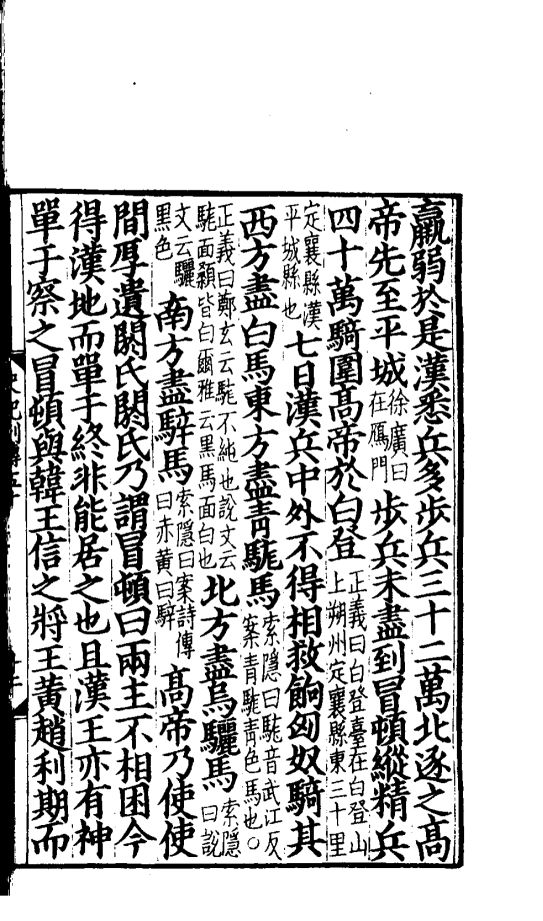 羸弱於是漢悉兵多步兵三十二萬北逐之高
帝先至平城徐廣曰在鴈門步兵未盡到冒頓縱精兵
四十萬騎圍高帝於白登正義曰白登臺在白登山上朔州定襄縣東三十里
定襄縣漢平城縣也七日漢兵中外不得相救餉匈奴騎其
西方盡白馬東方盡青駹馬索隱曰駹音武江反案青駹青色馬也○
正義曰鄭玄云駹不純也說文云駹面顙皆白爾雅云黑馬面白也北方盡烏驪馬索隱曰說
文云驪黑色南方盡騂馬索隱曰案詩傳曰赤黃曰騂高帝乃使使
間厚遺閼氏閼氏乃謂冒頓曰兩主不相困今
得漢地而單于終非能居之也且漢王亦有神
單于察之冒頓與韓王信之將王黃趙利期而